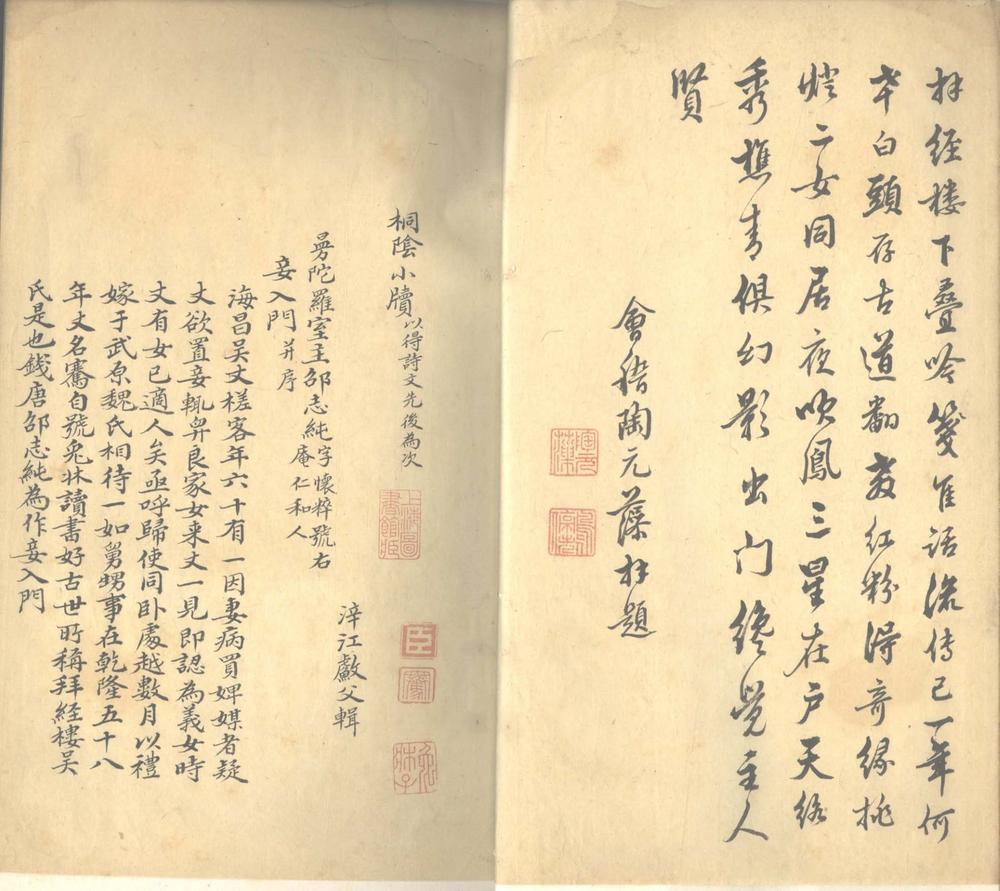 拜經樓下疊吟箋佳話流傳已一年何
幸白頭存古道翻教红粉得奇缘挑
燈二女同居夜吹鳳三星在户天络
秀樵青俱幻影出门終覺主人
賢
會稽陶元藻拜題
陶元藻
桐陰小牘以得詩文先後為次
上海圖書館藏
臣騫
淬江父輯
曼陀羅室主邵志純字懷粹號右庵仁和人
妾入門并序
海昌吳丈槎客年六十有一因妻病買婢媒者疑
丈欲置妾輒舁良家女来丈一見即認為義女時
丈有女已適人矣亟呼歸使同卧處越數月以禮
嫁于武原魏氏相待一如舅甥事在乾隆五十八
年丈名騫自號兔牀讀書好古世所稱拜經樓吳
氏是也錢唐邵志純為作妾入門